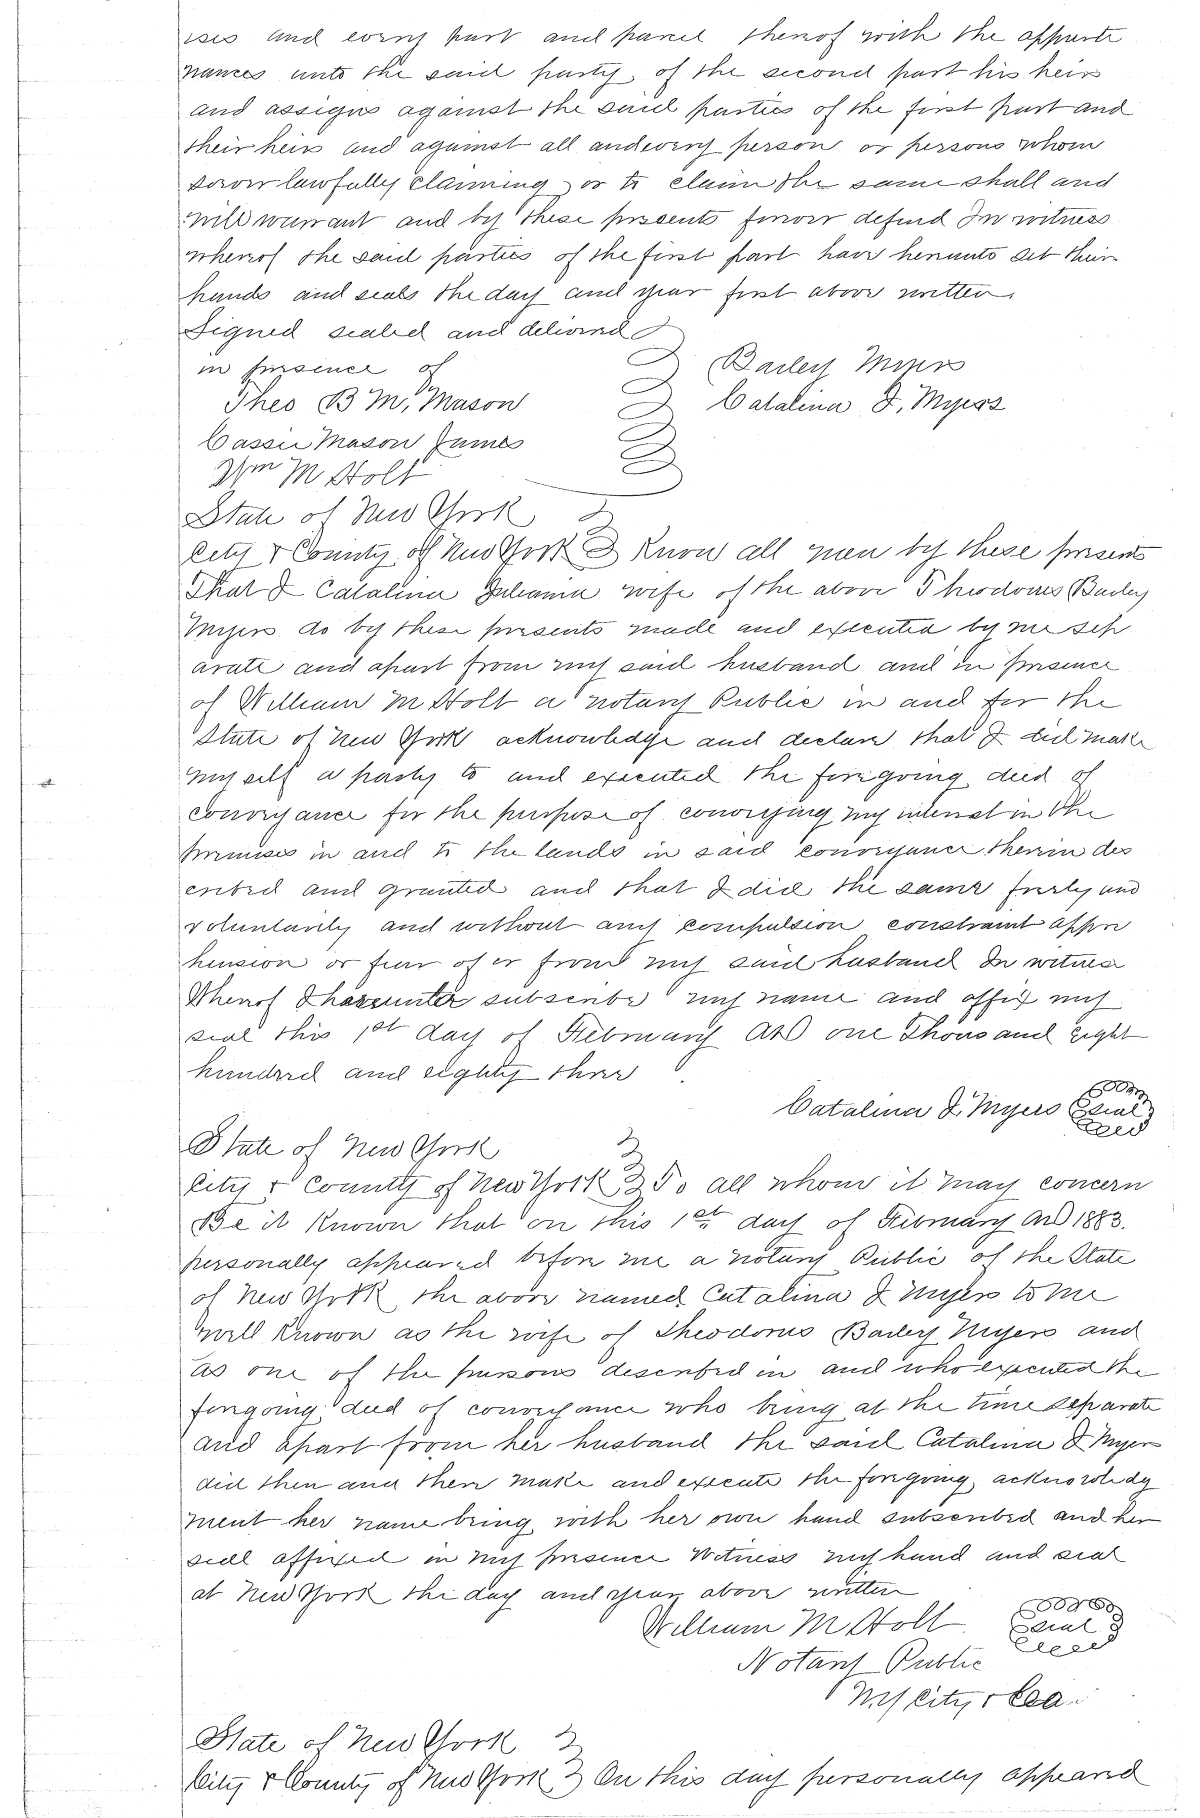 ises and every part and parcel thereof with the apperte
nances unto the said party of the second part his heirs
and assigns against the said parties of the first part and
their heirs and against all and every person or persons whom
soever lawfully claiming or to claim the same shall and
will warrant and by these presents forever defend In witness
whereof the said parties of the first part have hereunto set their
hands and seals the day and year first above written
Signed sealed and delivered
in presence of
Bailey Myers
Theo B M. Mason
Catalina J. Myers
Cassie Mason James
Wm M Holt
State of New York
City & County of New York Know all men by these presents
That I Catalina Juliana wife of the above Theodorus Bailey
Myers do by these presents made and executed by me sep
arate and apart from my said husband and in presence
of William M Holt a notary Public in and for the
State of New York acknowledge and declare that I did make
myself a party to and executed the foregoing deed of
conveyance for the purpose of conveying my interest in the
premises in and to the lands in said conveyance therein des
cribed and granted and that I did the same freely and
voluntarily and without any compulsion constraint appre
hension or fear of or from my said husband In witness
Whereof I hereunto subscribe my name and affix my
seal this 1st day of February AD one Thousand Eight
hundred and eighty three
Catalina J. Myers seal
State of New York
City & County of New York To all whom it may concern
Be it Known that on this 1st day of February AD 1883.
personally appeared before me a notary Public of the State
of New York the above named Catalina J Myers to me
well Known as the wife of Theodorus Bailey Myers and
as one of the persons described in and who executed the
foregoing deed of conveyance who being at the time separate
and apart from her husband the said Catalina J Myers
did then and there make and execute the foregoing acknowledg
ment her name being with her own hand subscribed and her
seal affixed in my presence Witness my hand and seal
at New York the day and year above written
William M Holt seal
Notary Public
NY City & Co.
State of New York
City & County of New York On this day personally appeared